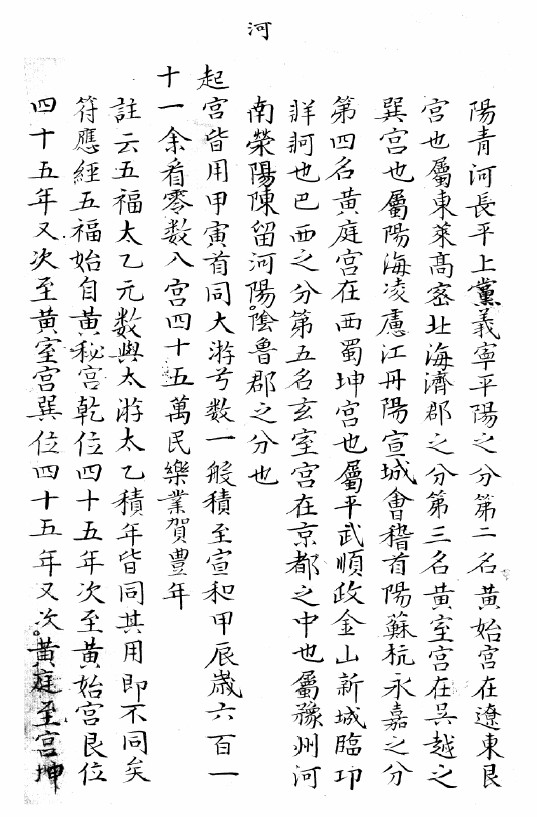 河
陽青河長平上黨義寧平陽之分第二名黃始宮在遼東艮
宮也屬東萊髙宻北海濟郡之分第三名黃室宮在吴越之
巽宮也屬陽海凌慮江丹陽宣城會稽首陽蘇杭永嘉之分
第四名黃庭宮在西蜀坤宮也屬平武順政金山新城臨邛
牂牁也巴西之分第五名玄室宮在京都之中也屬豫州河
南滎陽陳留河陽隂魯郡之分也
起宮皆用甲寅首同大游兮数一般積至宣和甲辰歲六百一
十一余看零数八宮四十五萬民樂業賀豊年
註云五福太乙元数與太游太乙積年皆同其用即不同矣
符應經五福始自黃秘宮乾位四十五年次至黃始宮艮位
四十五年又次至黃室宮巽位四十五年又次黃庭至宮坤